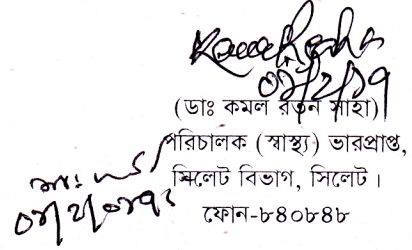 ০৬/২/১৭
(ডাঃ কমল রতন সাহা)
পরিচালক (স্বাস্থ্য) ভারপ্রাপ্ত,
সিলেট বিভাগ, সিলেট।
ফোন-৮৪০৮৪৮